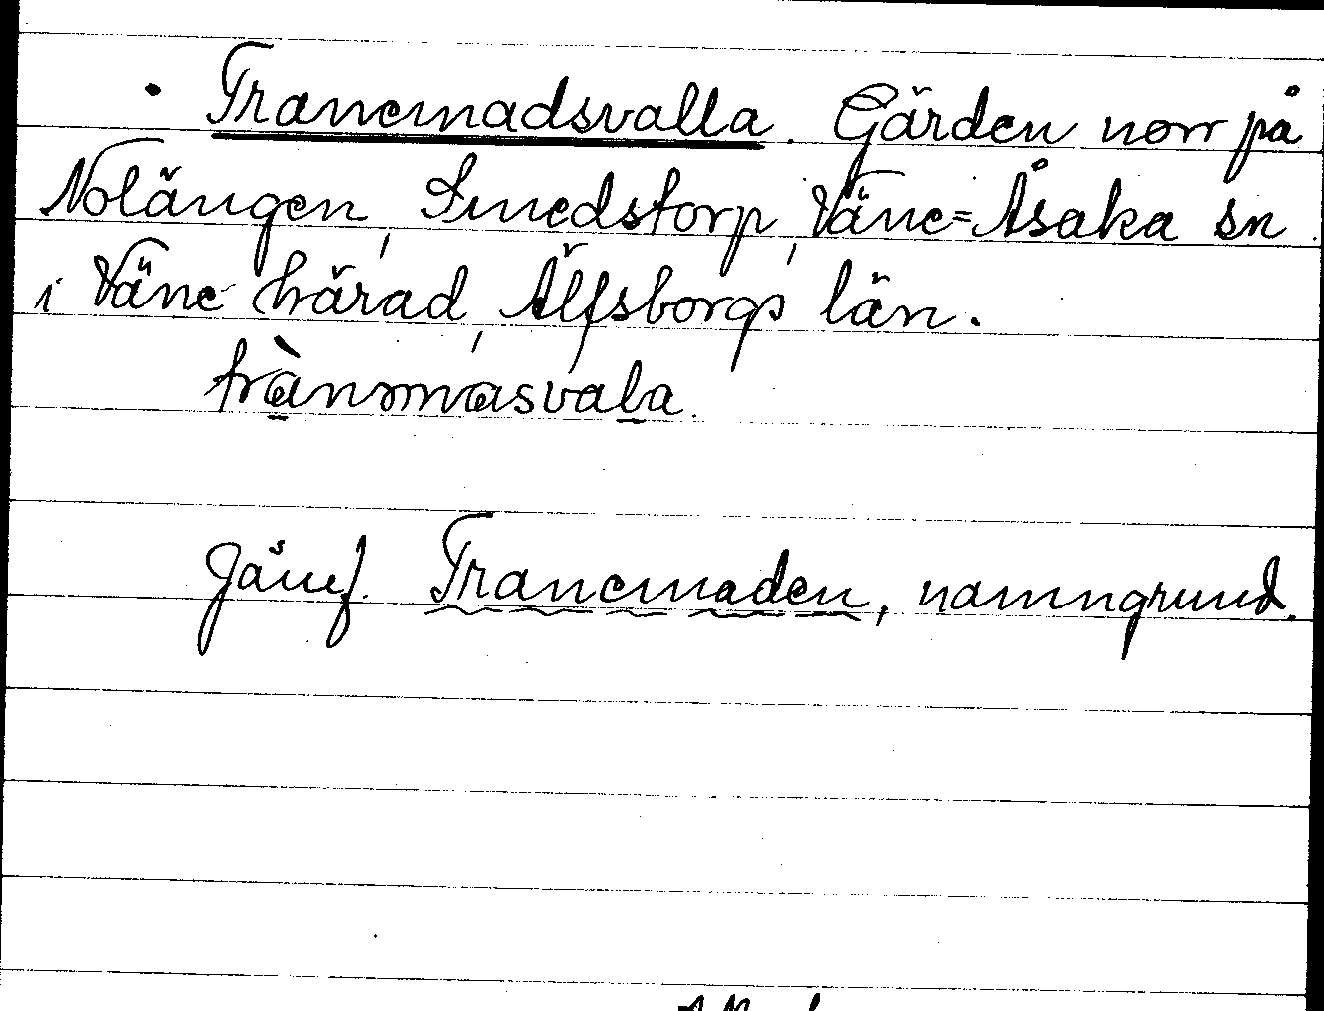 · Tranemadsvalla. Gärden norr på
Nolängen, Smedstorp, Väne=Åsaka sn
i Väne härad, Älfsborgs län.
trànmasvala.
Jämf. Tranemaden, namngrund.